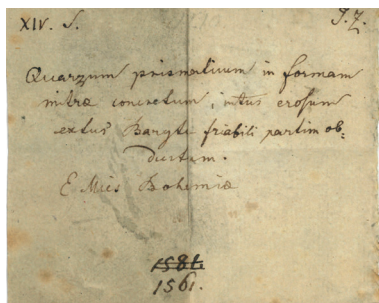 XIV. S. J. Z.
Quarzum prismaticum in formam
mitræ concretum, intus erosum
extus Baryti friabili partim ob=
ductum.
E Mies Bohemiæ
1581.
1561.